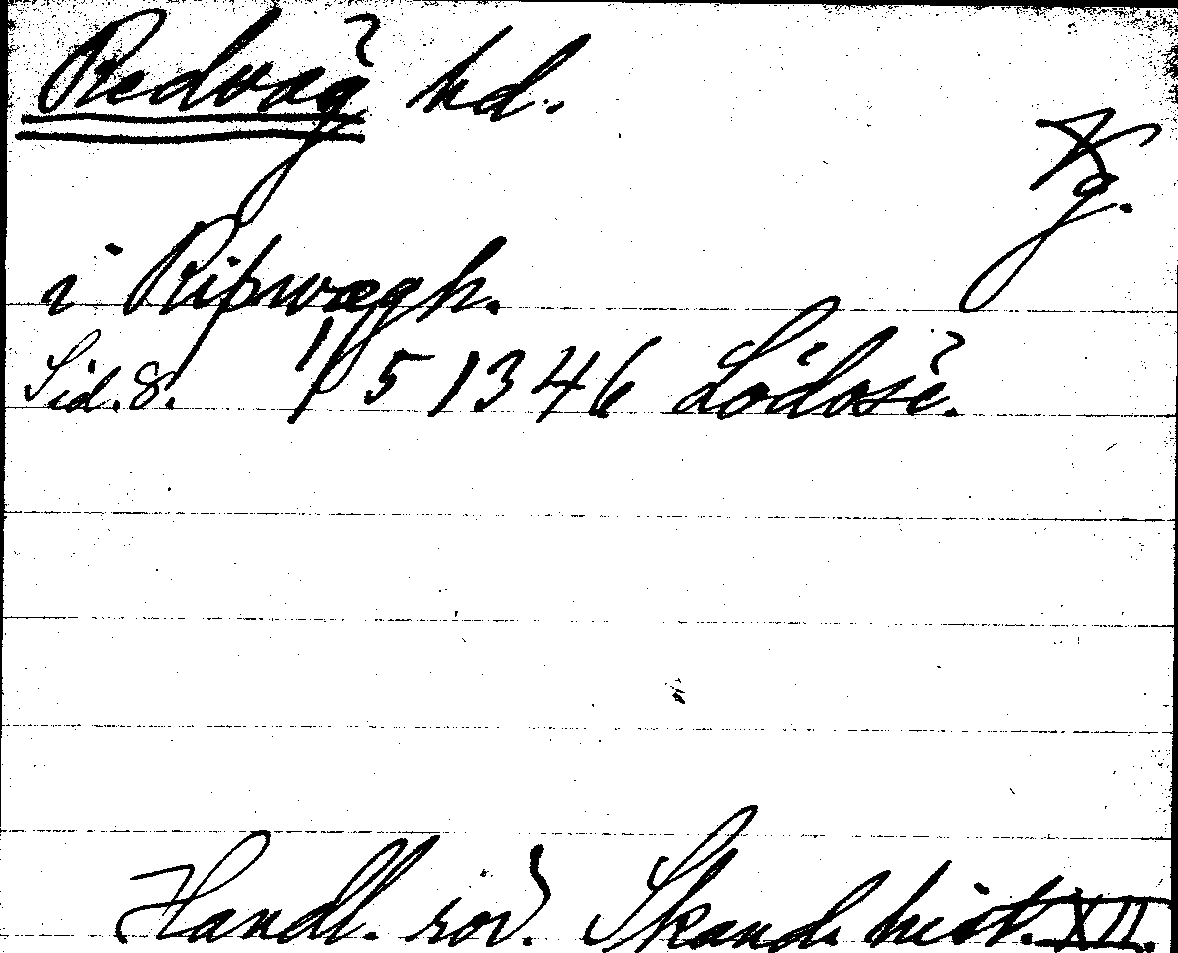 Redväg hd.
Vg.
i Riþwægh.
Sid. 8. 1/5 1346 Lödöse.
Handl. rör. Skand. hist. XII.